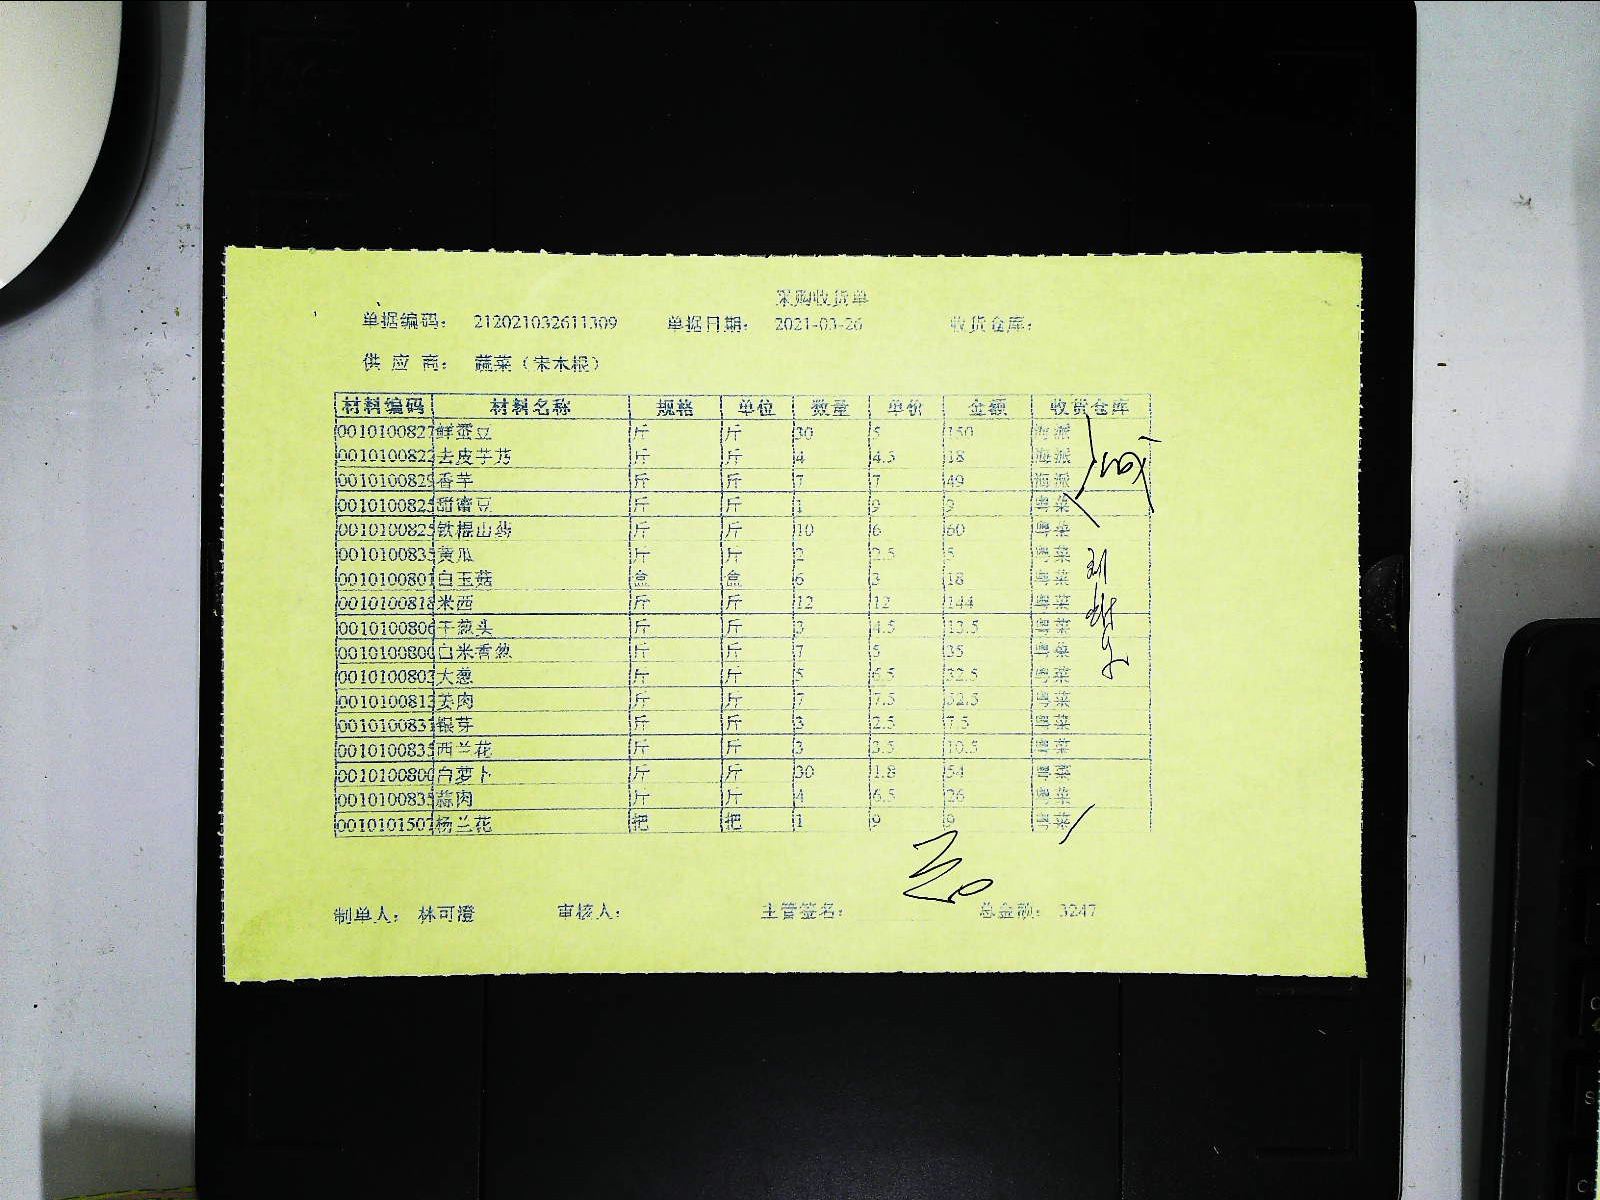 采购收货单
单据编码： 212021032611309 单据日期： 2021-03-26 收货仓库：
供 应 商： 蔬菜（宋木根）
材料编码 材料名称 规格 单位 数量 单价 金额 收货仓库
0010100827 鲜蚕豆 斤 斤 30 5 150 海派
0010100822 去皮芋艿 斤 斤 4 4.5 18 海派
0010100829 香芋 斤 斤 7 7 49 海派
0010100825 甜蜜豆 斤 斤 1 9 9 粤菜
0010100825 铁棍山药 斤 斤 10 6 60 粤菜
0010100835 黄瓜 斤 斤 2 2.5 5 粤菜
0010100801 白玉菇 盒 盒 6 3 18 粤菜
0010100818 米西 斤 斤 12 12 144 粤菜
0010100806 干葱头 斤 斤 3 4.5 13.5 粤菜
0010100800 白米香葱 斤 斤 7 5 35 粤菜
0010100803 大葱 斤 斤 5 6.5 32.5 粤菜
0010100813 姜肉 斤 斤 7 7.5 52.5 粤菜
0010100831 银芽 斤 斤 3 2.5 7.5 粤菜
0010100835 西兰花 斤 斤 3 3.5 10.5 粤菜
0010100800 白萝卜 斤 斤 30 1.8 54 粤菜
0010100835 蒜肉 斤 斤 4 6.5 26 粤菜
0010101507 杨兰花 把 把 1 9 9 粤菜
制单人： 林可澄 审核人： 主管签名： 总金额： 3247